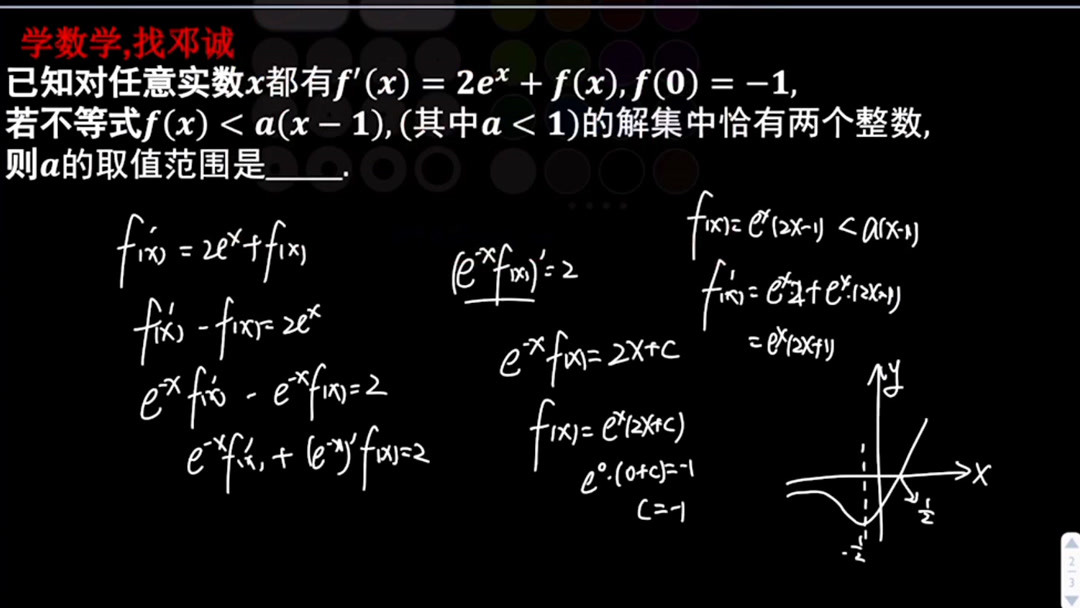 学数学,找邓诚
已知对任意实数x都有f′(x) = 2eˣ + f(x), f(0) = −1,
若不等式f(x) < a(x − 1), (其中a < 1)的解集中恰有两个整数,
则a的取值范围是_____.
f′(x) = 2eˣ + f(x)
f′(x) - f(x) = 2eˣ
e⁻ˣf′(x) - e⁻ˣf(x) = 2
e⁻ˣf′(x) + (e⁻ˣ)′f(x) = 2
(e⁻ˣf(x))′ = 2
e⁻ˣf(x) = 2x+c
f(x) = eˣ(2x+c)
e⁰·(0+c) = -1
c = -1
f(x) = eˣ(2x-1) < a(x-1)
f′(x) = eˣ·2 + eˣ·(2x-1)
= eˣ(2x+1)
y
x
1/2
-1/2
2
3